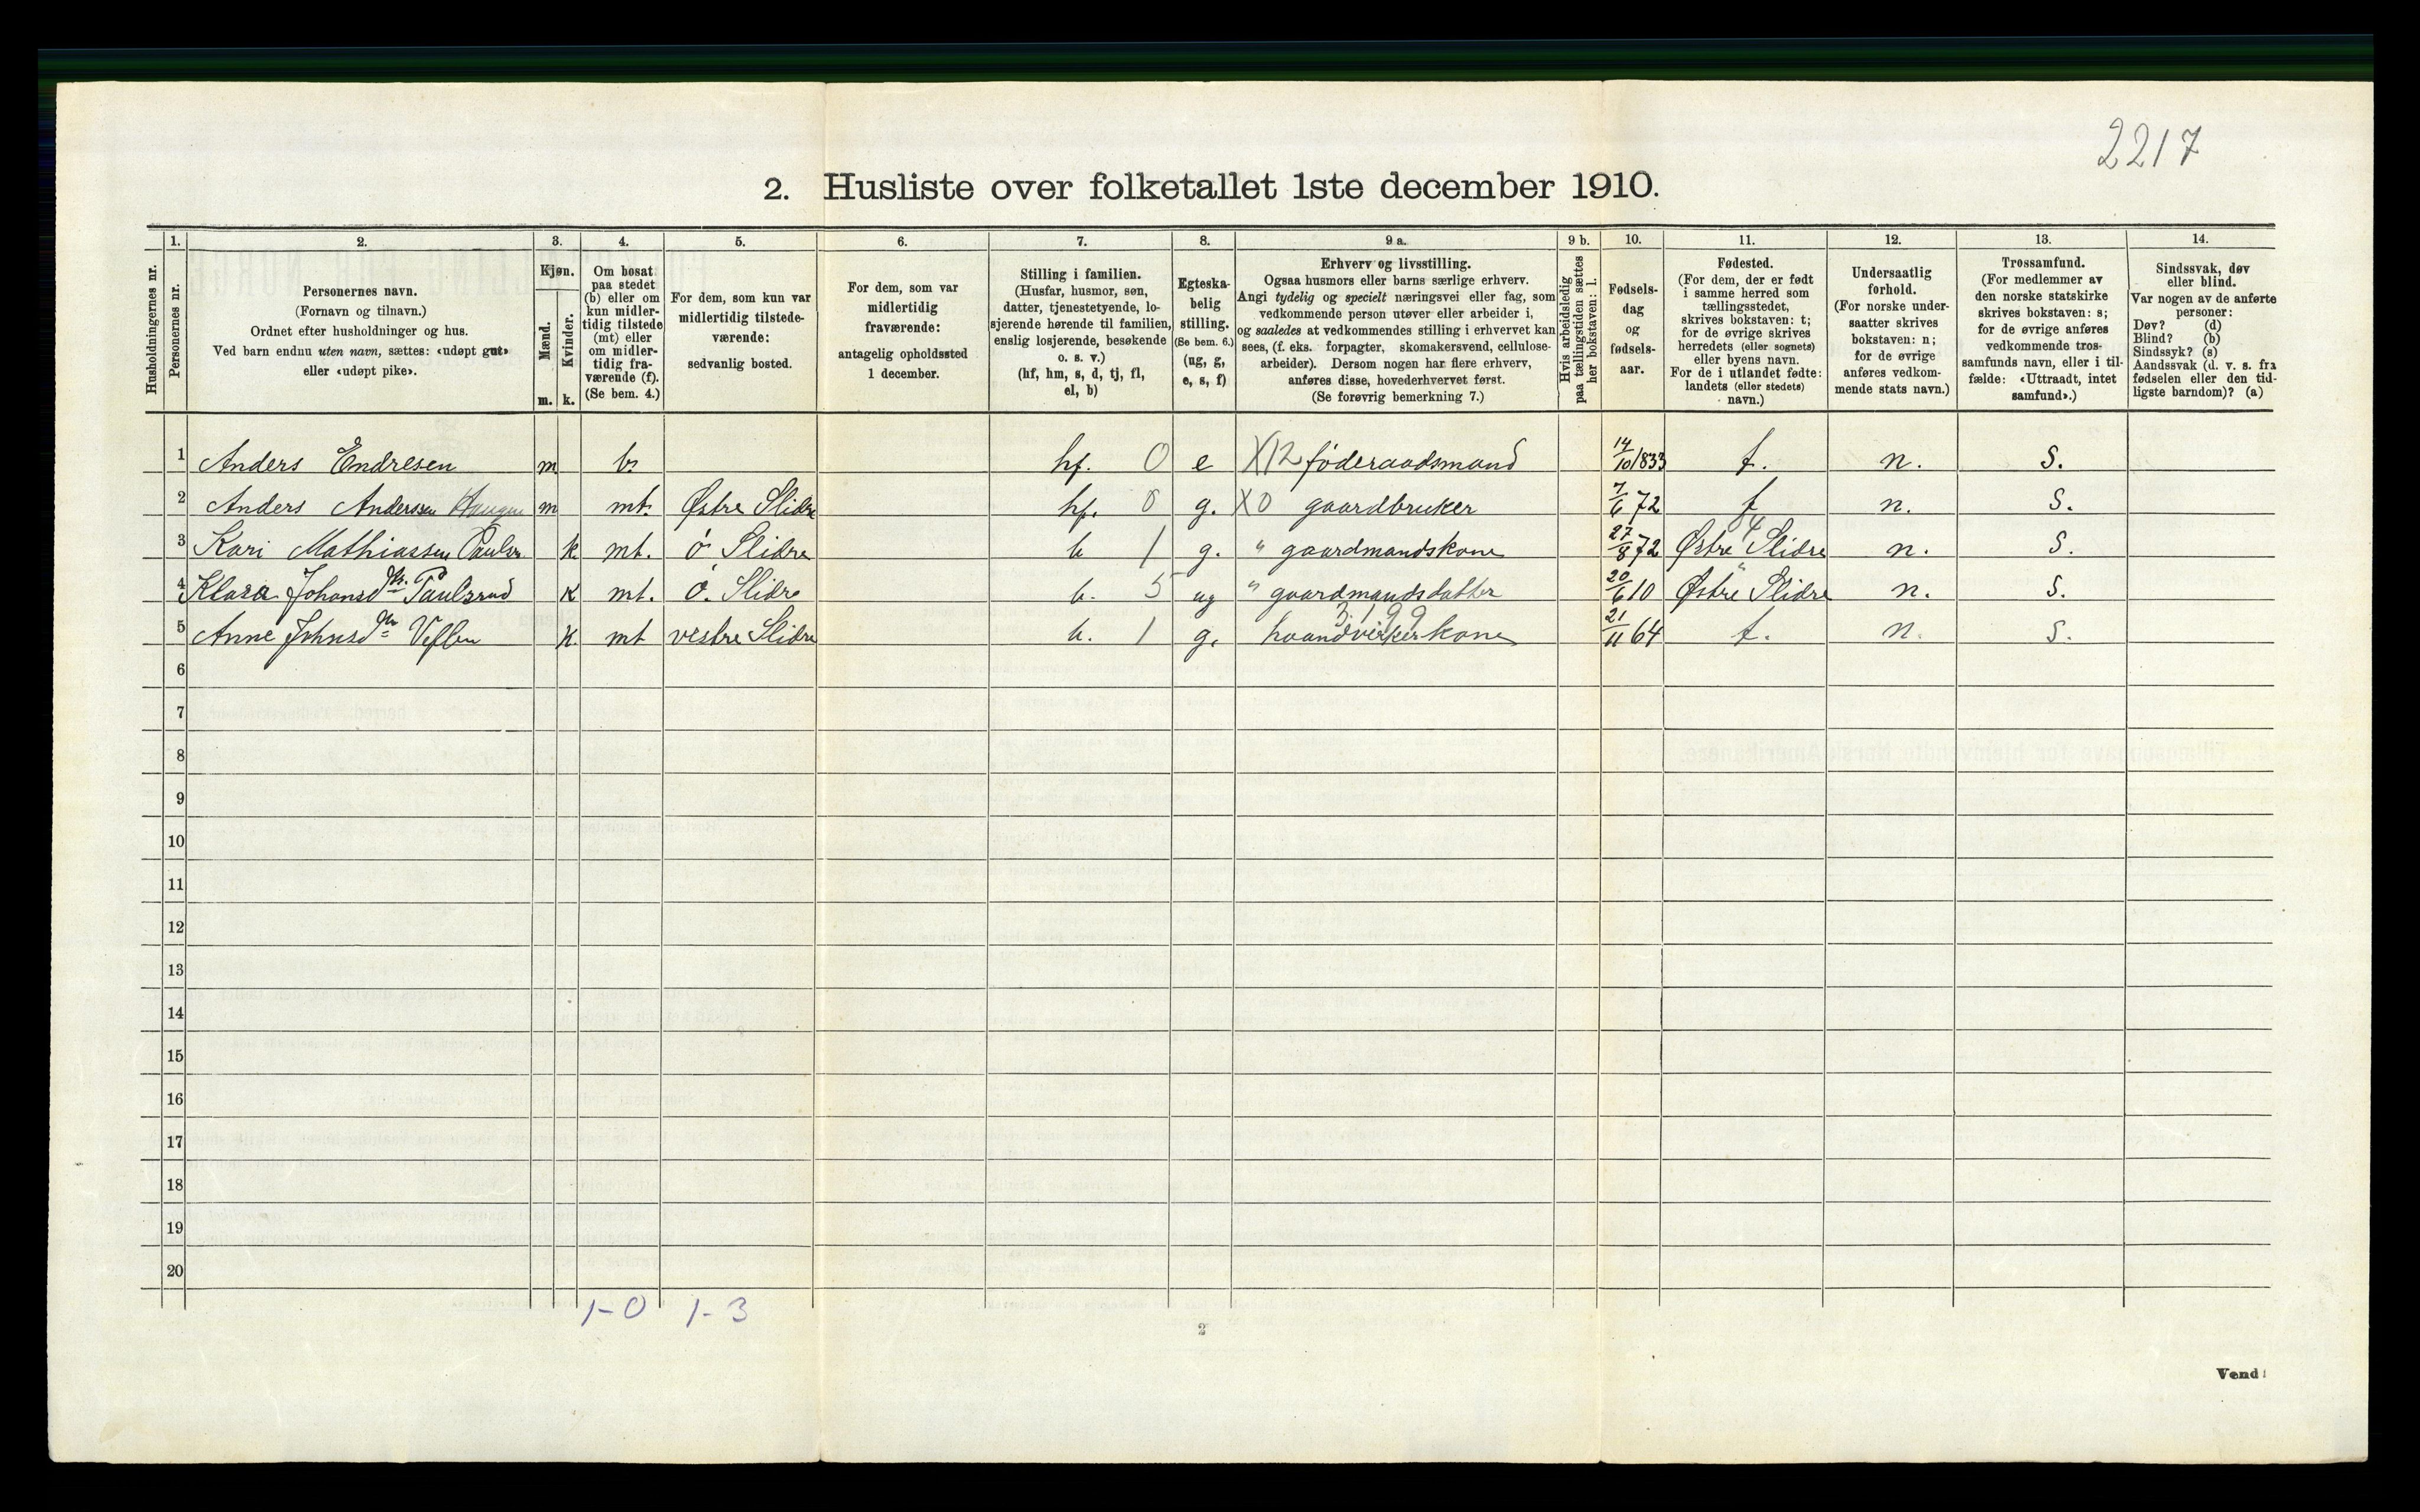 2217
2. Husliste over folketallet 1ste december 1910.
Husholdningernes nr.
1. Personernes nr.
2. Personernes navn. (Fornavn og tilnavn.) Ordnet efter husholdninger og hus. Ved barn endnu uten navn, sættes: «udøpt gut» eller «udøpt pike».
3. Kjøn. Mænd. m. Kvinder. k.
4. Om bosat paa stedet (b) eller om kun midlertidig tilstede (mt) eller om midlertidig fraværende (f). (Se bem. 4.)
5. For dem, som kun var midlertidig tilstedeværende: sedvanlig bosted.
6. For dem, som var midlertidig fraværende: antagelig opholdssted 1 december.
7. Stilling i familien. (Husfar, husmor, søn, datter, tjenestetyende, losjerende hørende til familien, enslig losjerende, besøkende o. s. v.) (hf, hm, s, d, tj, fl, el, b)
8. Egteskabelig stilling. (Se bem. 6.) (ug, g, e, s, f)
9 a. Erhverv og livsstilling. Ogsaa husmors eller barns særlige erhverv. Angi tydelig og specielt næringsvei eller fag, som vedkommende person utøver eller arbeider i, og saaledes at vedkommendes stilling i erhvervet kan sees, (f. eks. forpagter, skomakersvend, cellulosearbeider). Dersom nogen har flere erhverv, anføres disse, hovederhvervet først. (Se forøvrig bemerkning 7.)
9 b. Hvis arbeidsledig paa tællingstiden sættes her bokstaven: l.
10. Fødselsdag og fødselsaar.
11. Fødested. (For dem, der er født i samme herred som tællingsstedet, skrives bokstaven: t; for de øvrige skrives herredets (eller sognets) eller byens navn. For de i utlandet fødte: landets (eller stedets) navn.)
12. Undersaatlig forhold. (For norske undersaatter skrives bokstaven: n; for de øvrige anføres vedkommende stats navn.)
13. Trossamfund. (For medlemmer av den norske statskirke skrives bokstaven: s; for de øvrige anføres vedkommende trossamfunds navn, eller i tilfælde: «Uttraadt, intet samfund».)
14. Sindssvak, døv eller blind. Var nogen av de anførte personer: Døv? (d) Blind? (b) Sindssyk? (s) Aandssvak (d. v. s. fra fødselen eller den tidligste barndom)? (a)
1 Anders Endresen m b. hf. 0 e X12 føderaadsmand 14/10 1833 t. n. S.
2 Anders Anderssen Haugen m mt. Østre Slidre hf. 0 g. X0 gaardbruker 7/6 72 t n. S.
3 Kari Mathiassen k mt. ø Slidre b 1 g. " gaardmandskone 27/8 72 Østre Slidre n. S.
4 Klara Johansdtr. Paulsrud k mt. Ø. Slidre b. 5 ug " gaardmandsdatter 20/6 10 Østre Slidre n. S.
5 Anne Johnsdtr k. mt vestre Slidre b. 1 g. haandverkerkone 3.199 21/11 64 t. n. S.
6
7
8
9
10
11
12
13
14
15
16
17
18
19
20
1-0 1-3
2
Vend!